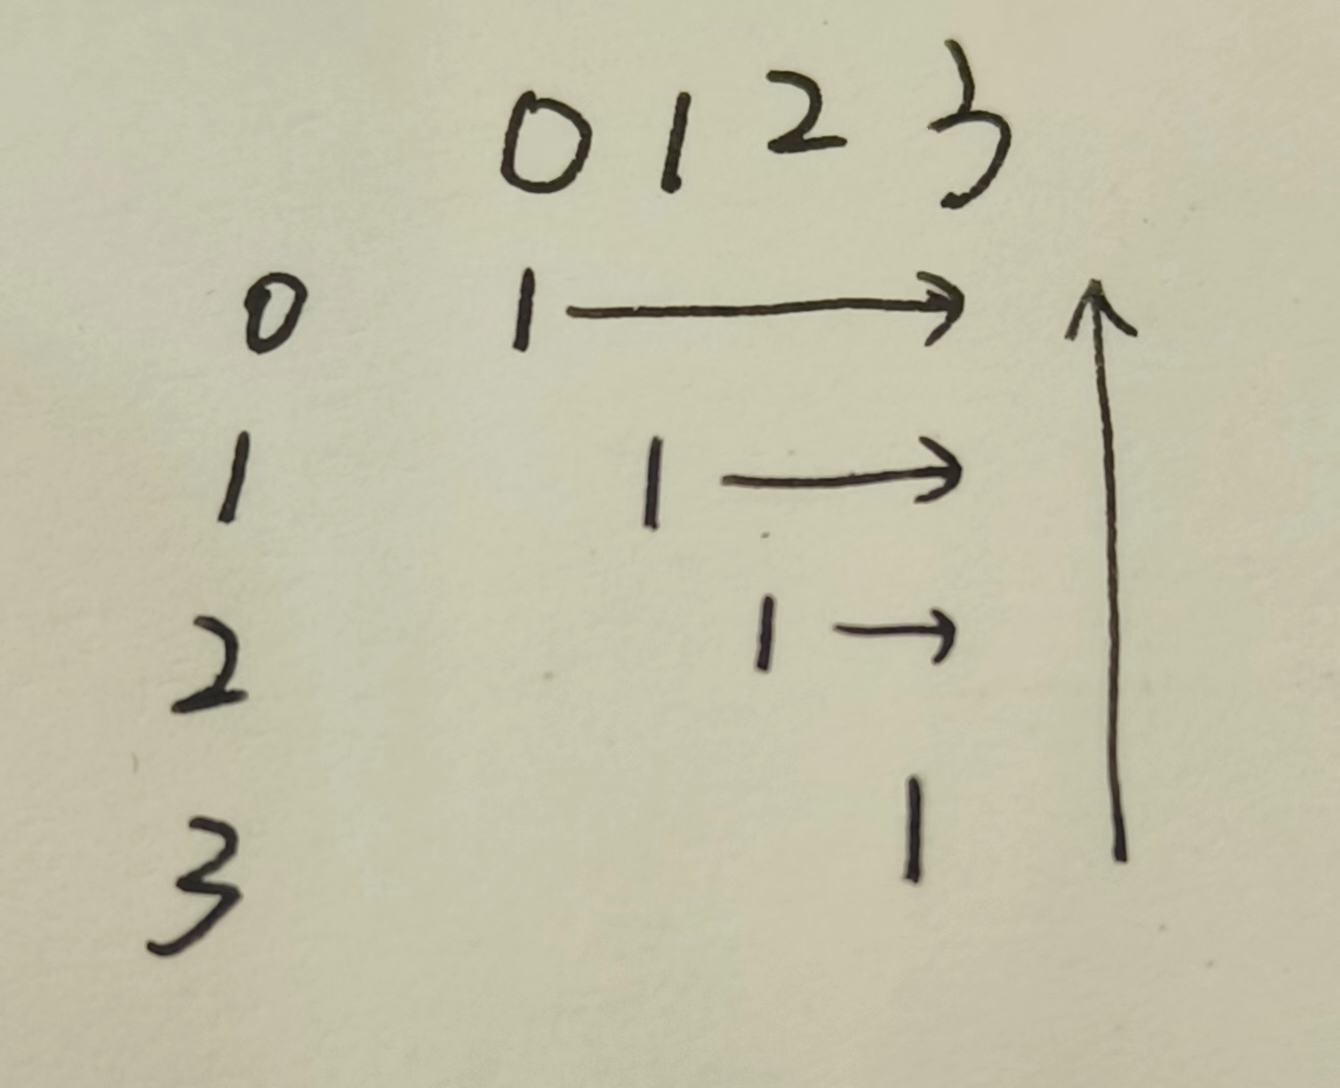 0 1 2 3
0 1 →
1 1 →
2 1 →
3 1